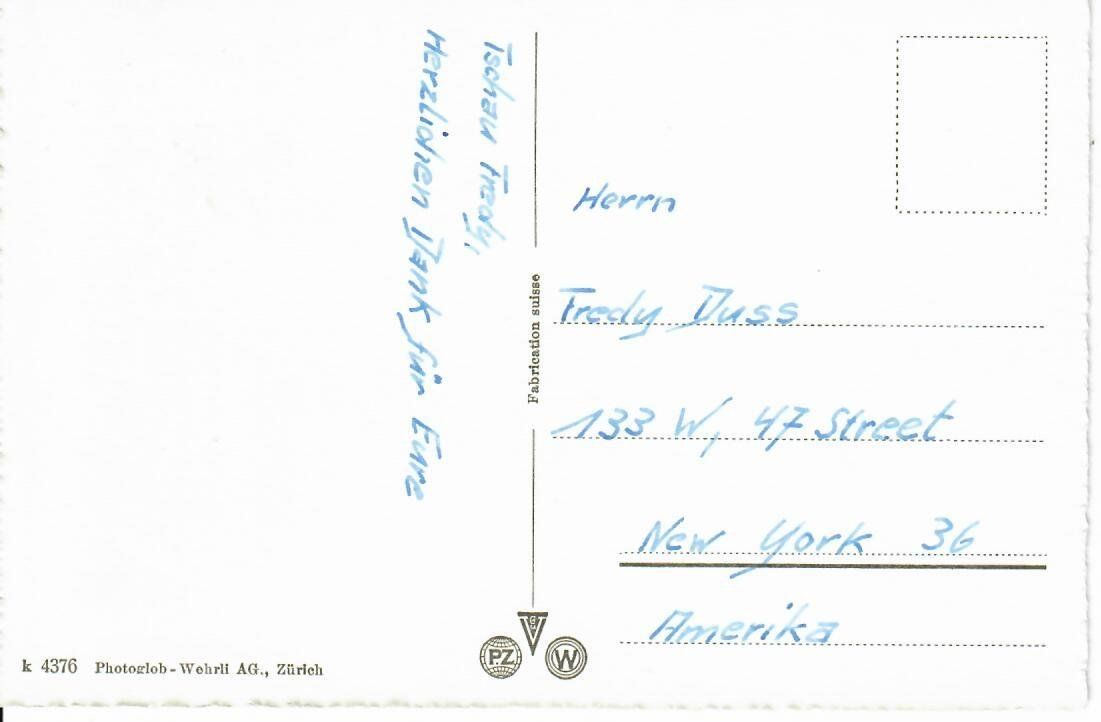 Tschau Fredy,
Herzlichen Dank für Eure
Fabrication suisse
Herrn
Fredy Duss
133 W, 47 Street
New York 36
Amerika
k 4376 Photoglob-Wehrli AG., Zürich
V G
PZ
W